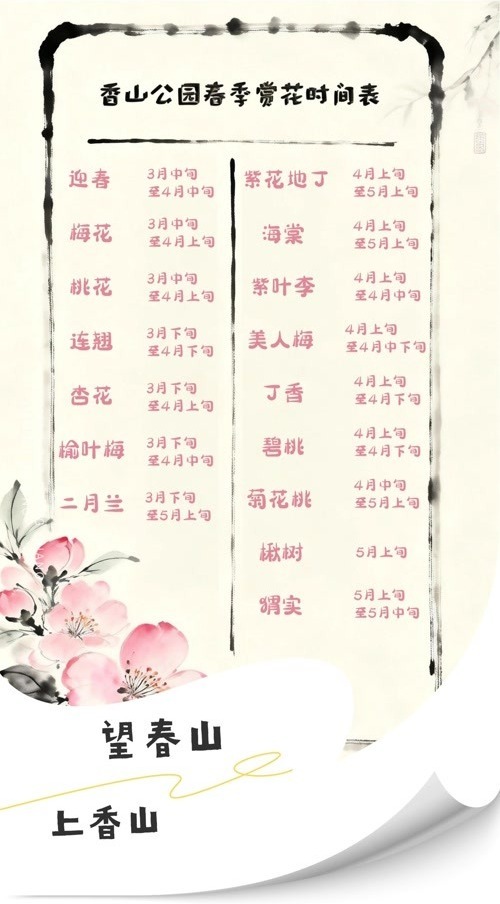 香山公园春季赏花时间表
迎春
3月中旬
至4月中旬
梅花
3月中旬
至4月上旬
桃花
3月中旬
至4月上旬
连翘
3月下旬
至4月下旬
杏花
3月下旬
至4月上旬
榆叶梅
3月下旬
至4月中旬
二月兰
3月下旬
至5月上旬
紫花地丁
4月上旬
至5月上旬
海棠
4月上旬
至5月上旬
紫叶李
4月上旬
至4月中旬
美人梅
4月上旬
至4月中下旬
丁香
4月上旬
至4月下旬
碧桃
4月上旬
至4月下旬
菊花桃
4月中旬
至5月上旬
楸树
5月上旬
猬实
5月上旬
至5月中旬
望春山
上香山